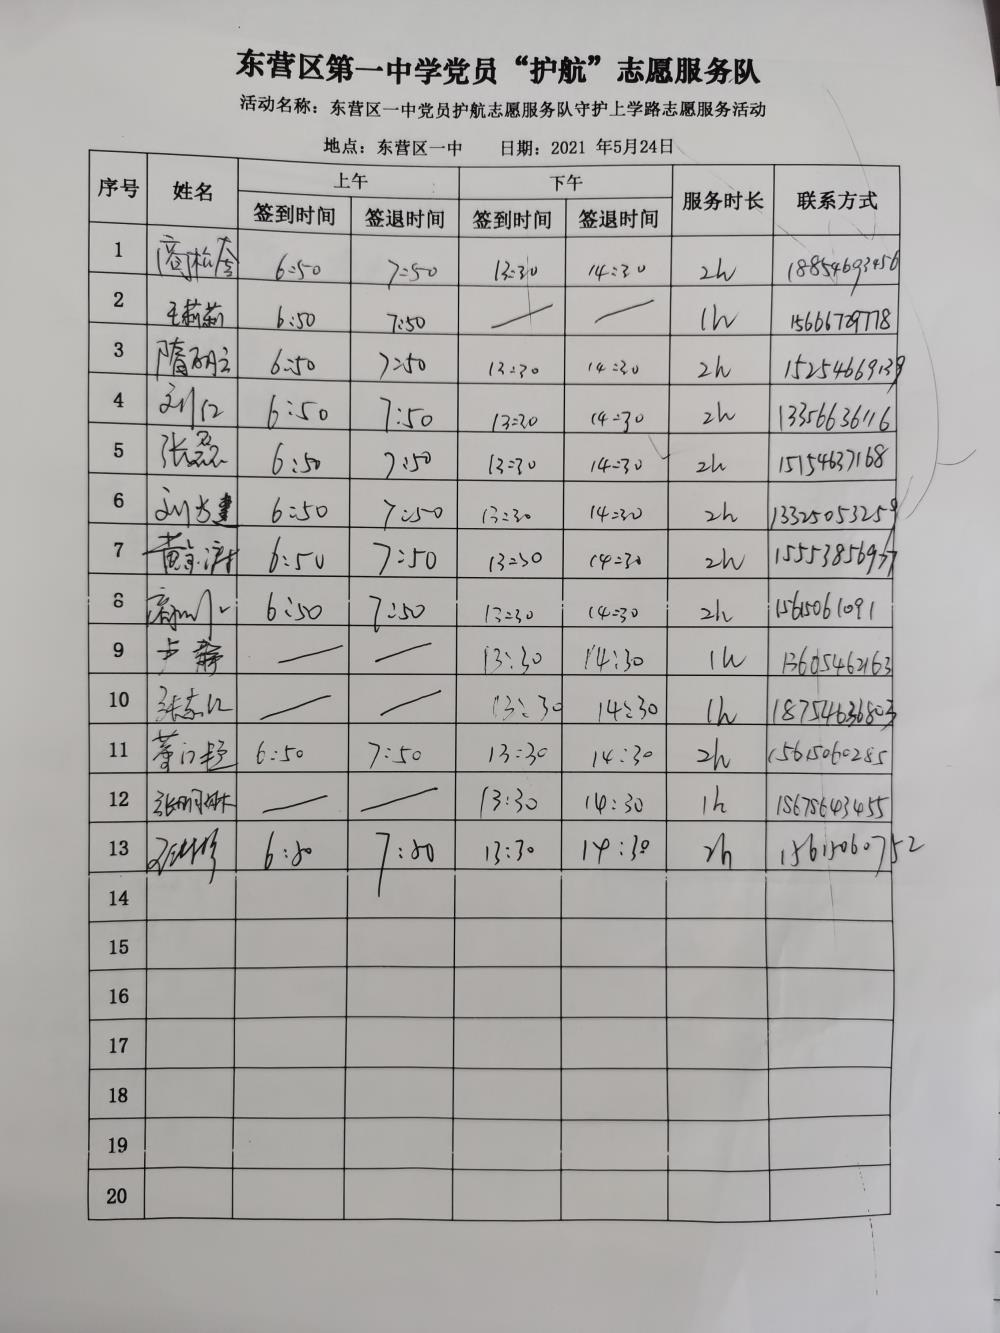 东营区第一中学党员“护航”志愿服务队
活动名称：东营区一中党员护航志愿服务队守护上学路志愿服务活动
地点：东营区一中 日期：2021 年5月24日
序号 姓名 上午 下午 服务时长 联系方式
签到时间 签退时间 签到时间 签退时间
1 6:50 7:50 13:30 14:30 2h 18854693456
2 王莉莉 6:50 7:50 — — 1h 15666729778
3 6:50 7:50 13:30 14:30 2h 15254669139
4 刘红 6:50 7:50 13:30 14:30 2h 13356636116
5 张磊 6:50 7:50 13:30 14:30 2h 15154637168
6 刘志建 6:50 7:50 13:30 14:30 2h 13325053259
7 6:50 7:50 13:30 14:30 2h
8 6:50 7:50 13:30 14:30 2h 15615061091
9 尹静 — — 13:30 14:30 1h 13605462163
10 — — 13:30 14:30 1h 18754636803
11 6:50 7:50 13:30 14:30 2h 15615060285
12 张明琳 — — 13:30 14:30 1h 18678643455
13 6:50 7:50 13:30 14:30 2h 15615060752
14
15
16
17
18
19
20